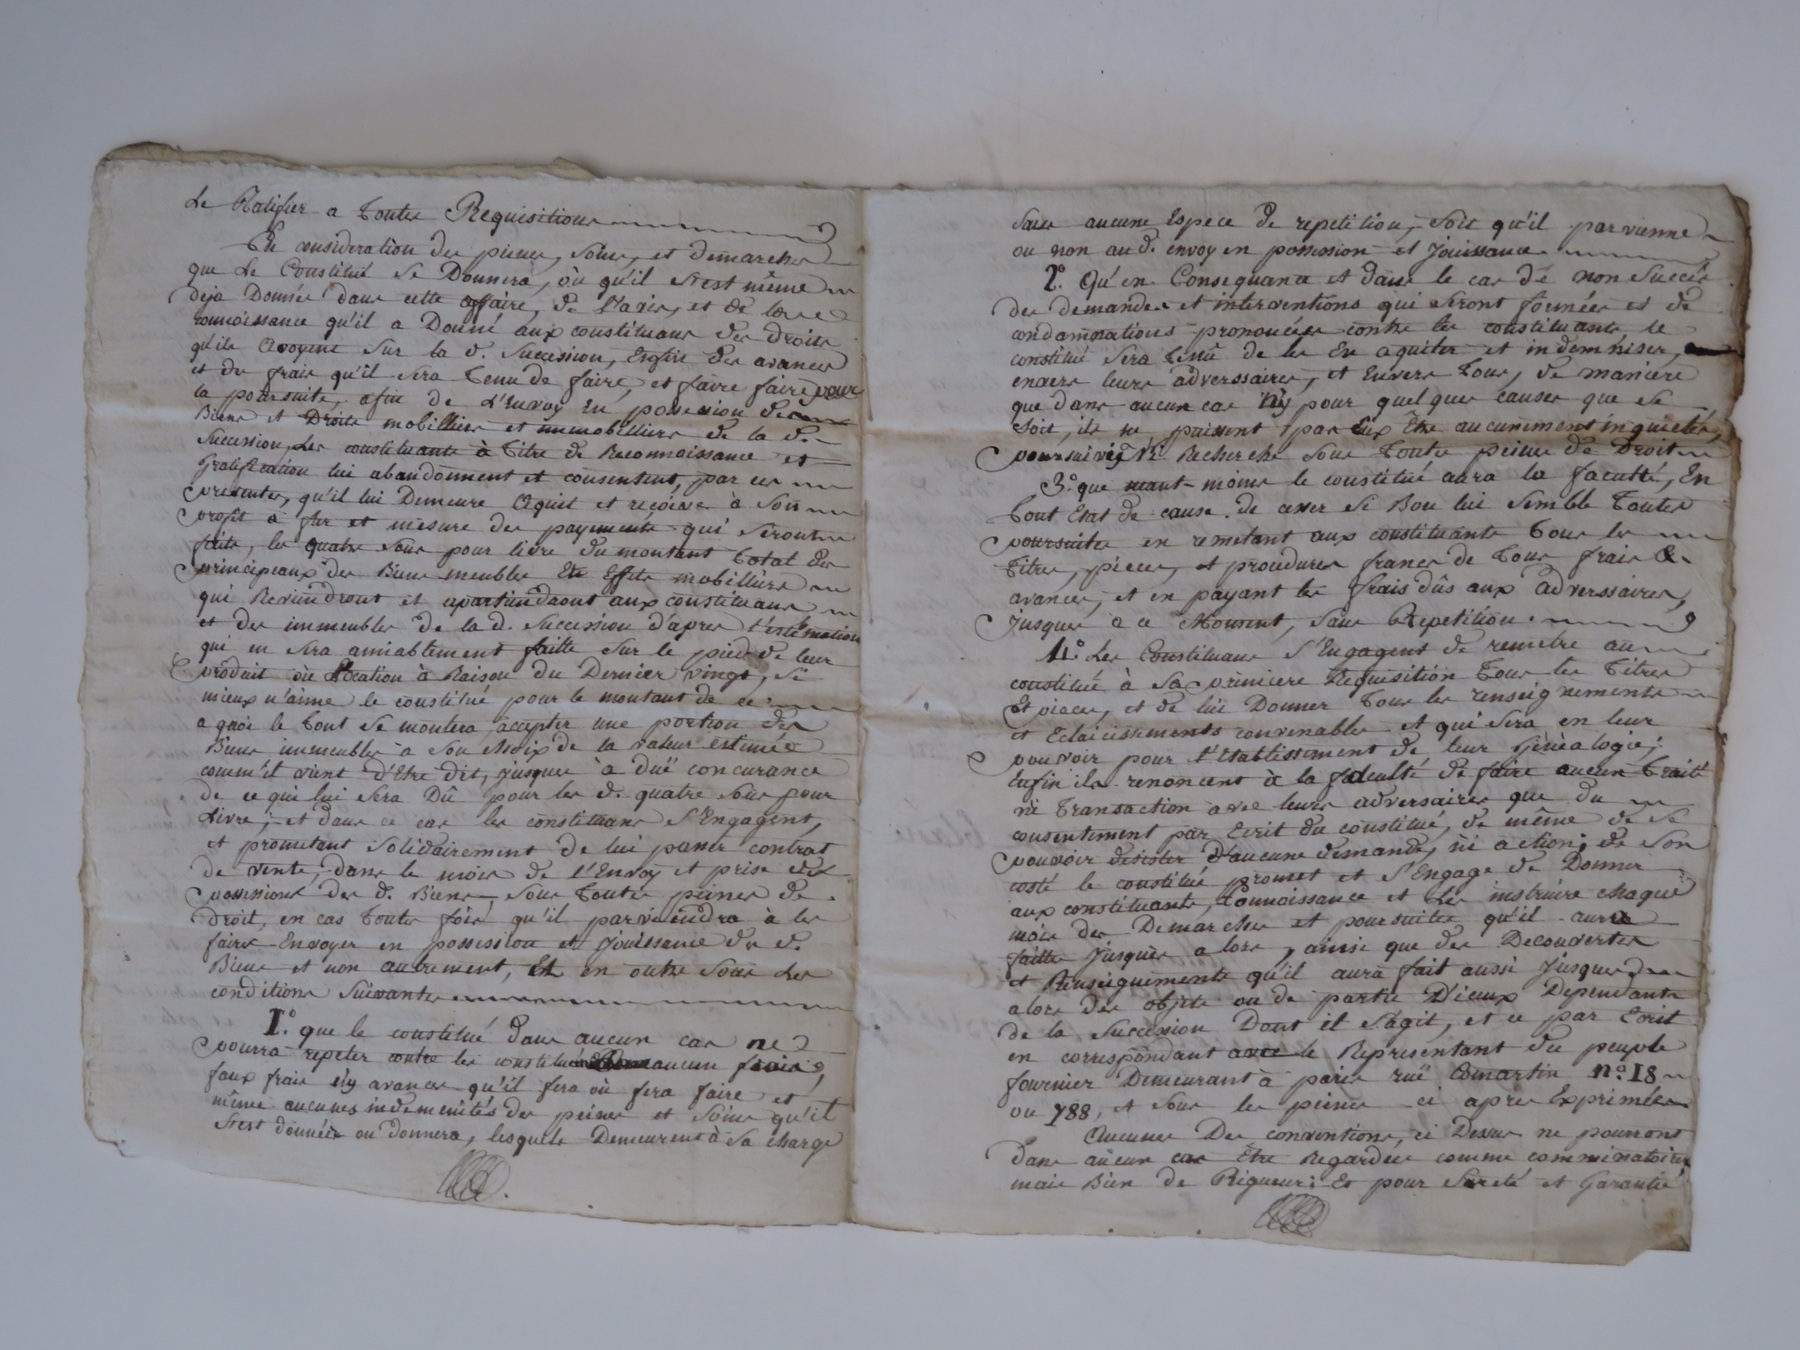 Le Ratifier a toutes Requisitions
En consideration des peines, soins, et demarches
que Le Constitué se Donnera, où qu'il s'est même
deja Données dans cette affaire, de l'avis, et de la
connoissance qu'il a Donné aux constituans des droits
qu'ils avoyent sur la d. succession, Enfin des avances
et du frais qu'il sera tenu de faire, et faire faire pour
la poursuite, afin de L'Envoy En possession des
Biens et Droits mobilliers et immobilliers de la d.
succession, Les constituants à titre de Reconnoissance et
Gratification lui abandonnent et consentent, par ces
presentes, qu'il lui Demeure Aquit et reçoive à son
profit a fur et mesure des payements qui seront
faits, les quatre sous pour livre du montant total des
principeaux des Biens meubles Et Effets mobilliers
qui Reviendront et apartiendront aux constituans
et des immeubles de la d. succession d'apres l'estimation
qui en sera amiablement faitte sur le pied de leur
produit où location à Raison du Dernier vingt, si
mieux n'aime le constitué pour le montant de ce
a quoi le tout se montera, accepter une portion des
Biens immeubles à son choix de la valeur estimée
comm'il vient d'Etre dit, jusques à duë concurance
de ce qui lui sera Dû pour les d. quatre sous pour
Livre; et dans ce cas les constituans s'Engagent,
et promettant solidairement de lui passer contrat
de vente, dans le mois de l'Envoy et prise de
possession des d. Biens, sous toutes peines de
droit, en cas toutes fois qu'il parviendra à les
faire Envoyer en possession et jouissance du d.
Biens et non autrement, Et en outre sous Les
conditions suivantes
1.° que le constitué dans aucun cas ne
pourra repeter contre les constitués aucun frais,
faux frais n'y avances qu'il fera où fera faire et
même aucunes indemnités des peines et soins qu'il
s'est données ou donnera, lesquels Demeurent à sa charge
sans aucune Espece de repetition, soit qu'il parvienne
ou non au d. envoy en possession et jouissance
2.° Qu'en Consequance et dans le cas de non succès
des demandes et interventions qui seront formées et de
condamnations prononcées contre les constituants, le
constitué sera tenû de les En aquiter et indemniser,
envers leurs adverssaires, et Envers tous, de maniere
que dans aucun cas n'y pour quelques causes que se
soit, ils ne puissent par Eux Etre aucunement inquietés,
poursuivis Ni Recherchés sous toutes peines de Droit
3.° que neant-moins le constitué aura la faculté, En
tout Etat de cause de cesser si Bon lui semble toutes
poursuites en remetant aux constituants tous les
titres, pieces, et procedures francs de tous frais &
avances, et en payant les frais dûs aux adverssaires,
jusques à ce Moment, sans Repetition.
4.° Les Constituans s'Engagent de remetre au
constitué à sa premiere Requisition tous les titres
Et pieces, et de lui Donner tous les renseignements
et Eclaicissements convenables et qui sera en leur
pouvoir pour l'Etablissement de leur Généalogie;
Enfin ils renoncent à la faculté de faire aucun traité
ni transaction avec leurs adversaires que du
consentement par Ecrit du constitué, de même de se
pouvoir desister d'aucune demande, ni action; de son
costé le constitué promet et s'Engage de Donner
aux constituants, Connoissance et Les instruire chaque
mois des Demarches et poursuites qu'il aura
faittes jusques alors, ainsi que des Decouvertes
et Renseignements qu'il aura fait aussi jusques
alors des objets ou de partie D'iceux Dependants
de la succession Dont il s'agit, et ce par Ecrit
en correspondant avec le Representant du peuple
fournier Demeurant à paris ruë Comartin n.° 18
ou 788, et sous les peines ci apres Exprimées
Aucunes Des conventions, ci Dessus ne pourront
dans aucun cas Etre Regardées comme comminatoires
mais Bien de Rigueur; Et pour sureté et Garantie